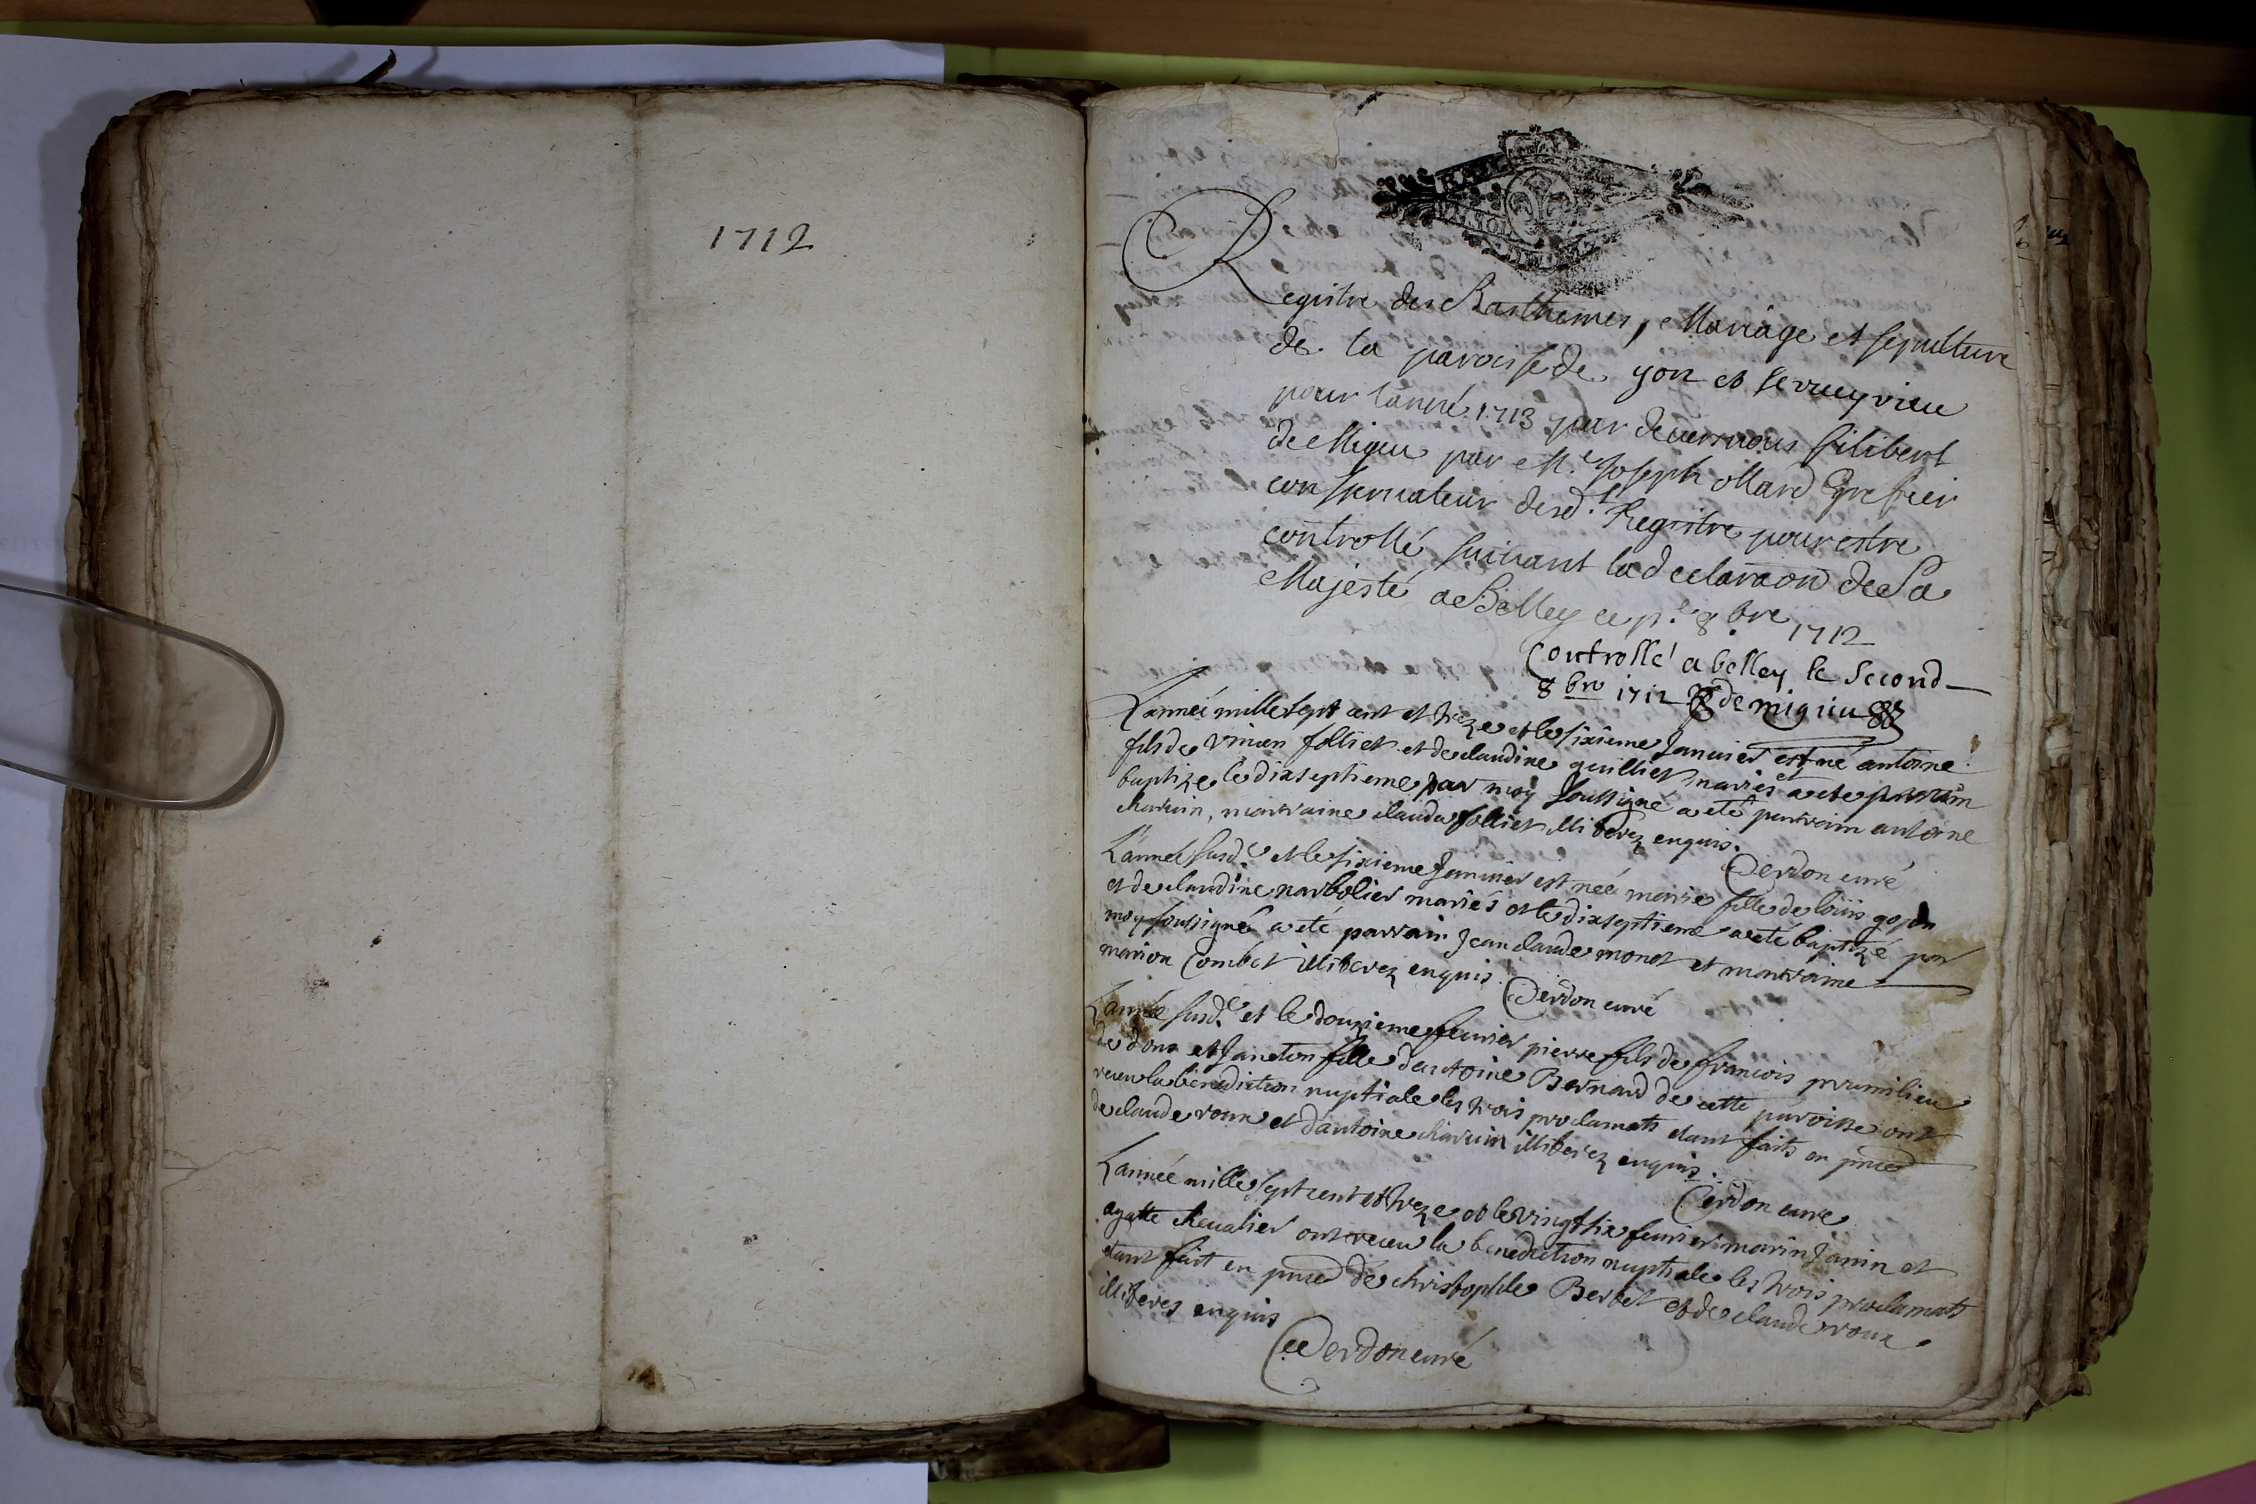 1712
Registre des Basthemes, Mariage et sepulture
de la paroisse de yon et Cervueyrieu
pour lanné 1713 par devers nous filibert
de Migieu par Me Joseph ollard Grefier
conservateur desd. Registre pour estre
controllé suivant la declaraon de Sa
Majesté a Belley ce pr. 8bre 1712
Controllé a belley le second
8bre 1712 de migiieu
Lannée mille sept cent et treze et le sixieme Janvier est né antoine
fils de vincen folliet et de claudine guilliet mariés a eté
baptize le dixseptieme par moy soussigné a eté parrain antoine
charvin, marraine clauda folliet illiterez enquis.
Cerdon curé
Lannée susde et le sixieme Janvier est née marie fille de loüis gojon
et de claudine narbolier mariés et le dixseptieme a eté baptizé par
moy soussigné a eté parrain Jean claude monet et marraine
marion Combet illiterez enquis.
Cerdon curé
Lannée susde et le douzieme fevrier pierre fils de francois prumilieu
de don et Janeton fille dantoine Bernard de cette paroisse ont
receu la benediction nuptiale les trois proclamats etant faits en pnce
de claude roux et dantoine charvin illiterez enquis.
Cerdon curé
Lannée mille sept cent et treze et le vingt six fevrier marin Janin et
agatte chevalier ont receu la benediction nuptiale les trois proclamats
etant fait en pnce de christophle Berlet et de claude roux.
illiteres enquis
Cerdon curé